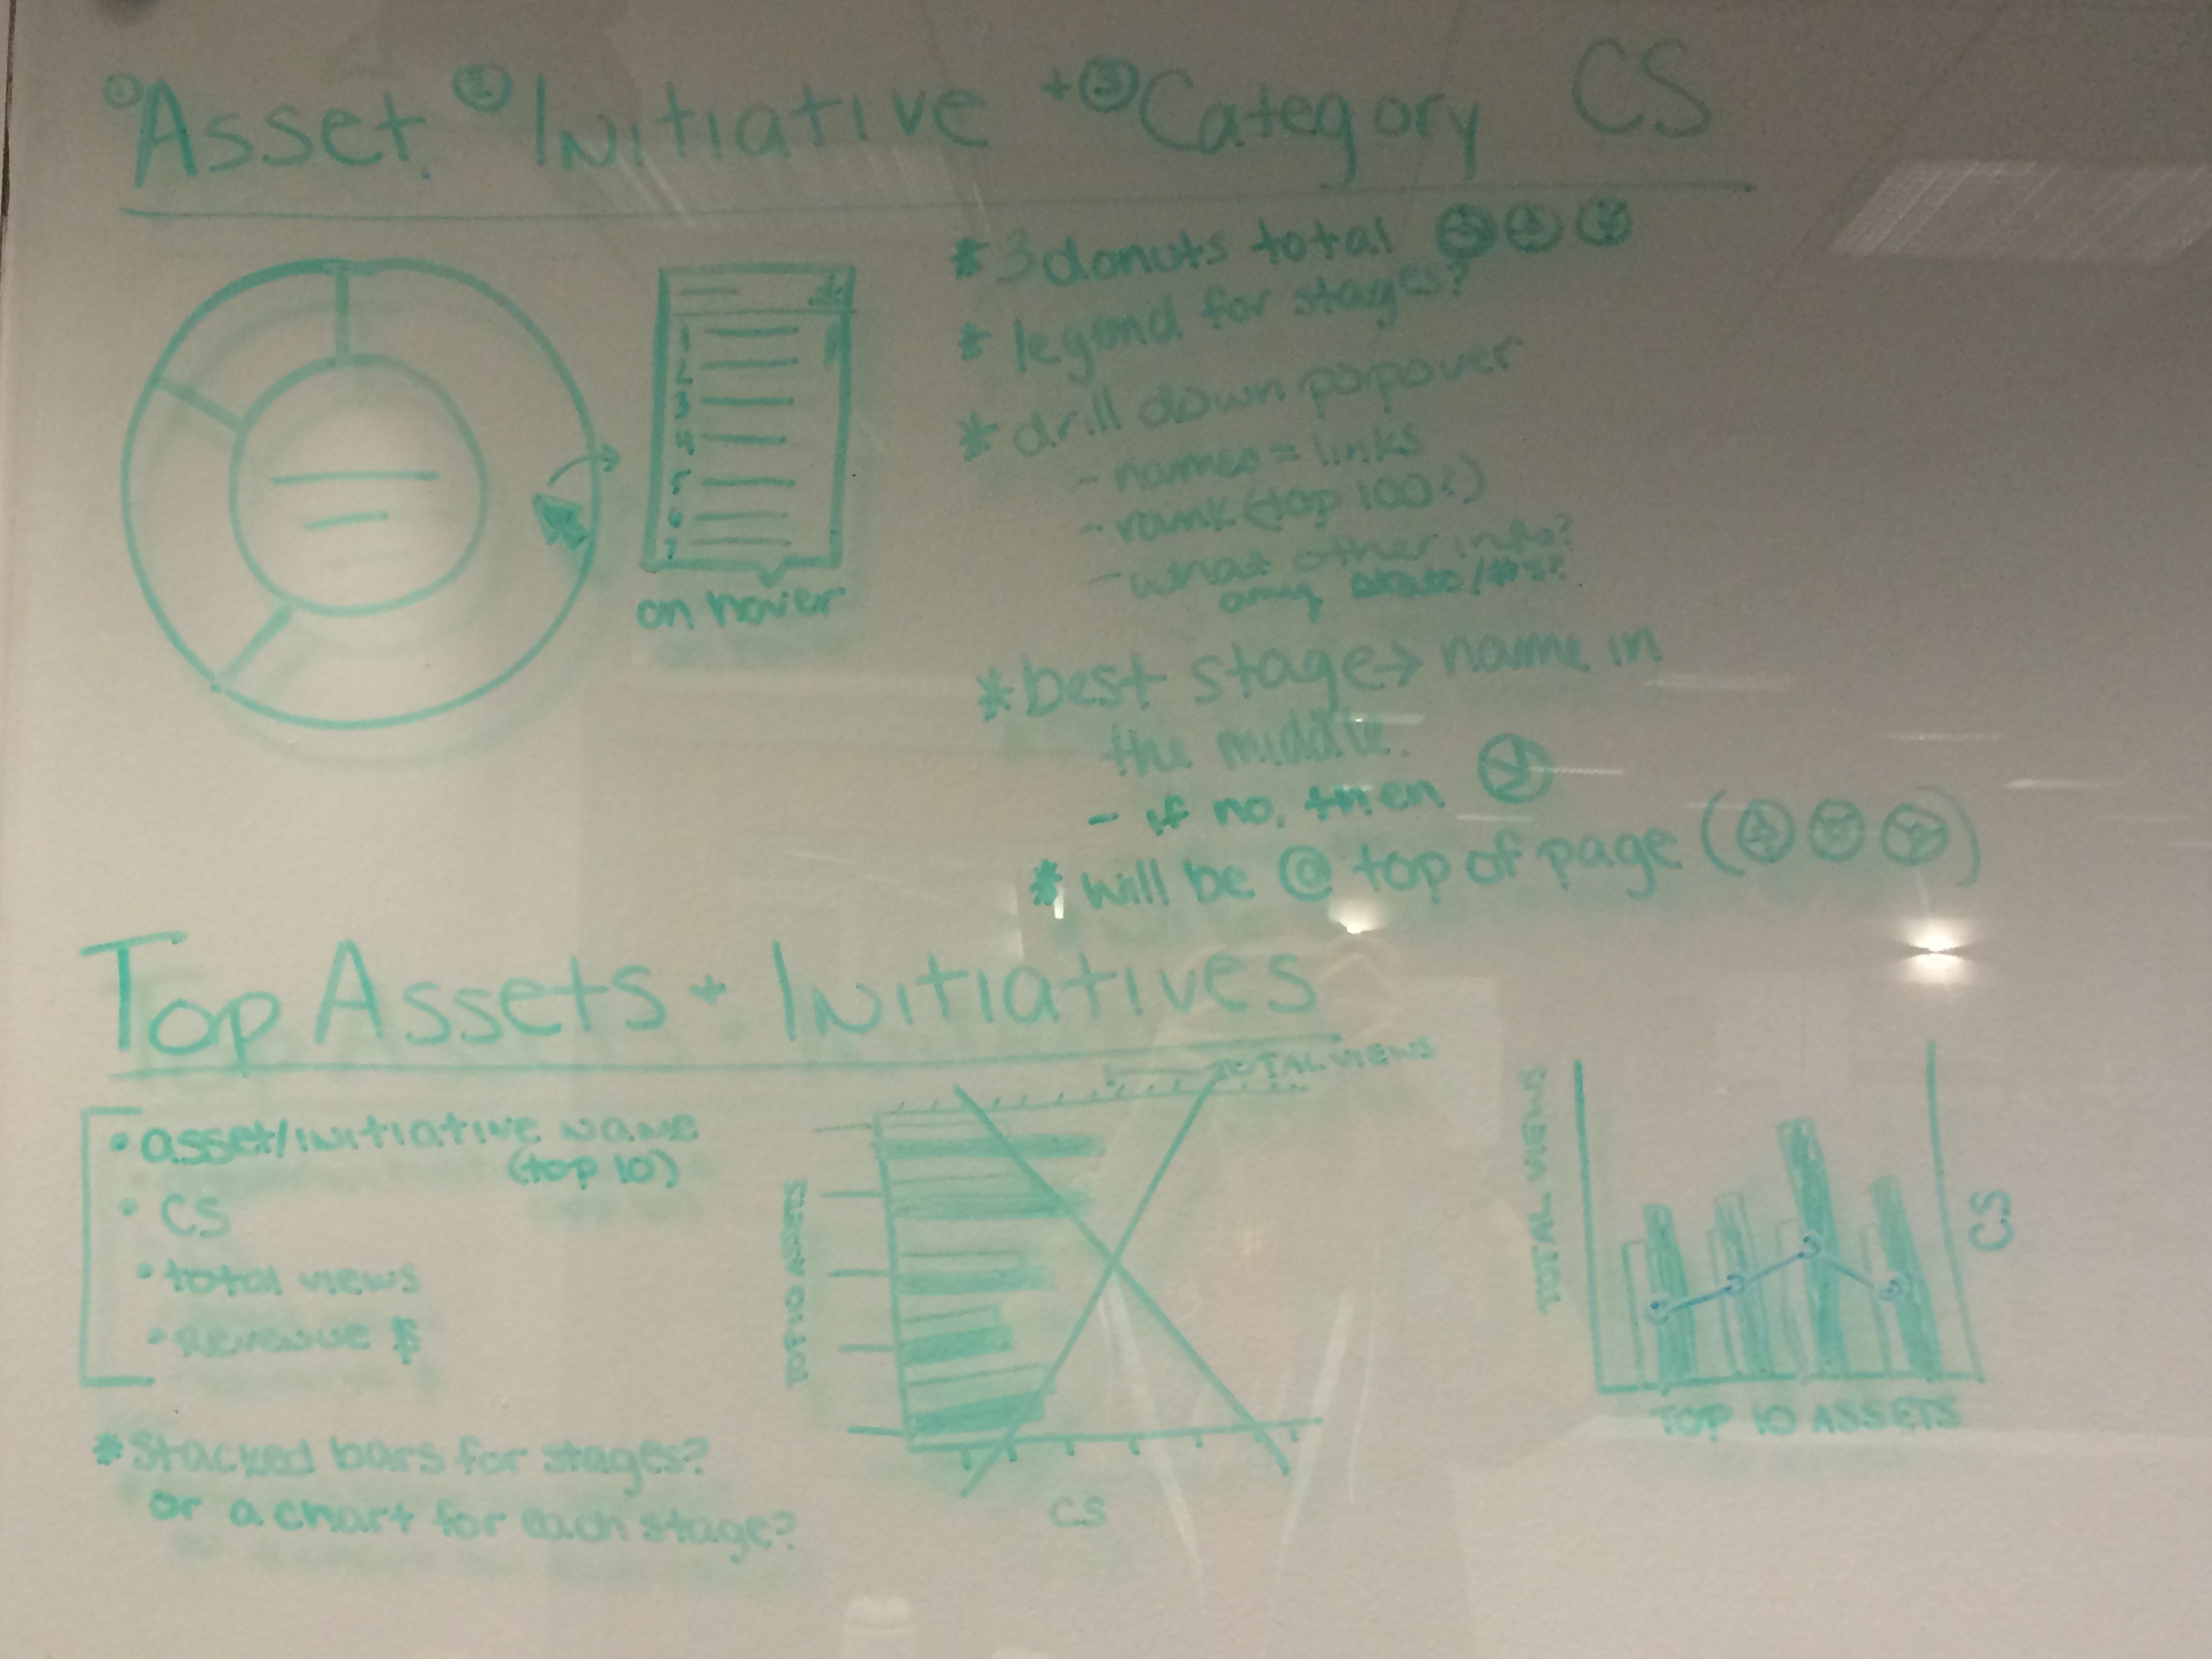 ① Asset, ② Initiative + ③ Category CS
* 3 donuts total
* legend for stages?
* drill down popover
- names = links
- rank (top 100?)
- what other info?
any /#s?
1
2
3
4
5
6
7
on hover
* best stage → name in
the middle.
- if no, then
* will be @ top of page
Top Assets + Initiatives
• asset/initiative name
(top 10)
• CS
• total views
• Revenue $
* Stacked bars for stages?
or a chart for each stage?
TOTAL VIEWS
TOP 10 ASSETS
CS
TOTAL VIEWS
CS
TOP 10 ASSETS